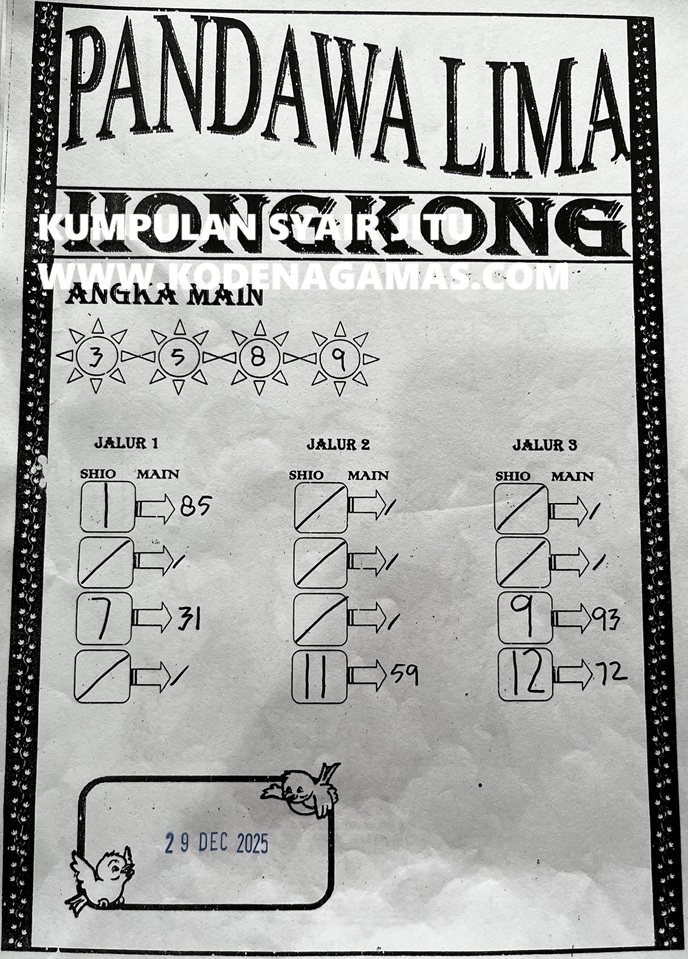 PANDAWA LIMA
HONGKONG
KUMPULAN SYAIR JITU
WWW.KODENAGAMAS.COM
ANGKA MAIN
3 5 8 9
JALUR 1 JALUR 2 JALUR 3
SHIO MAIN SHIO MAIN SHIO MAIN
1 85 / / / /
/ / / / / /
7 31 / / 9 93
/ / 11 59 12 72
29 DEC 2025